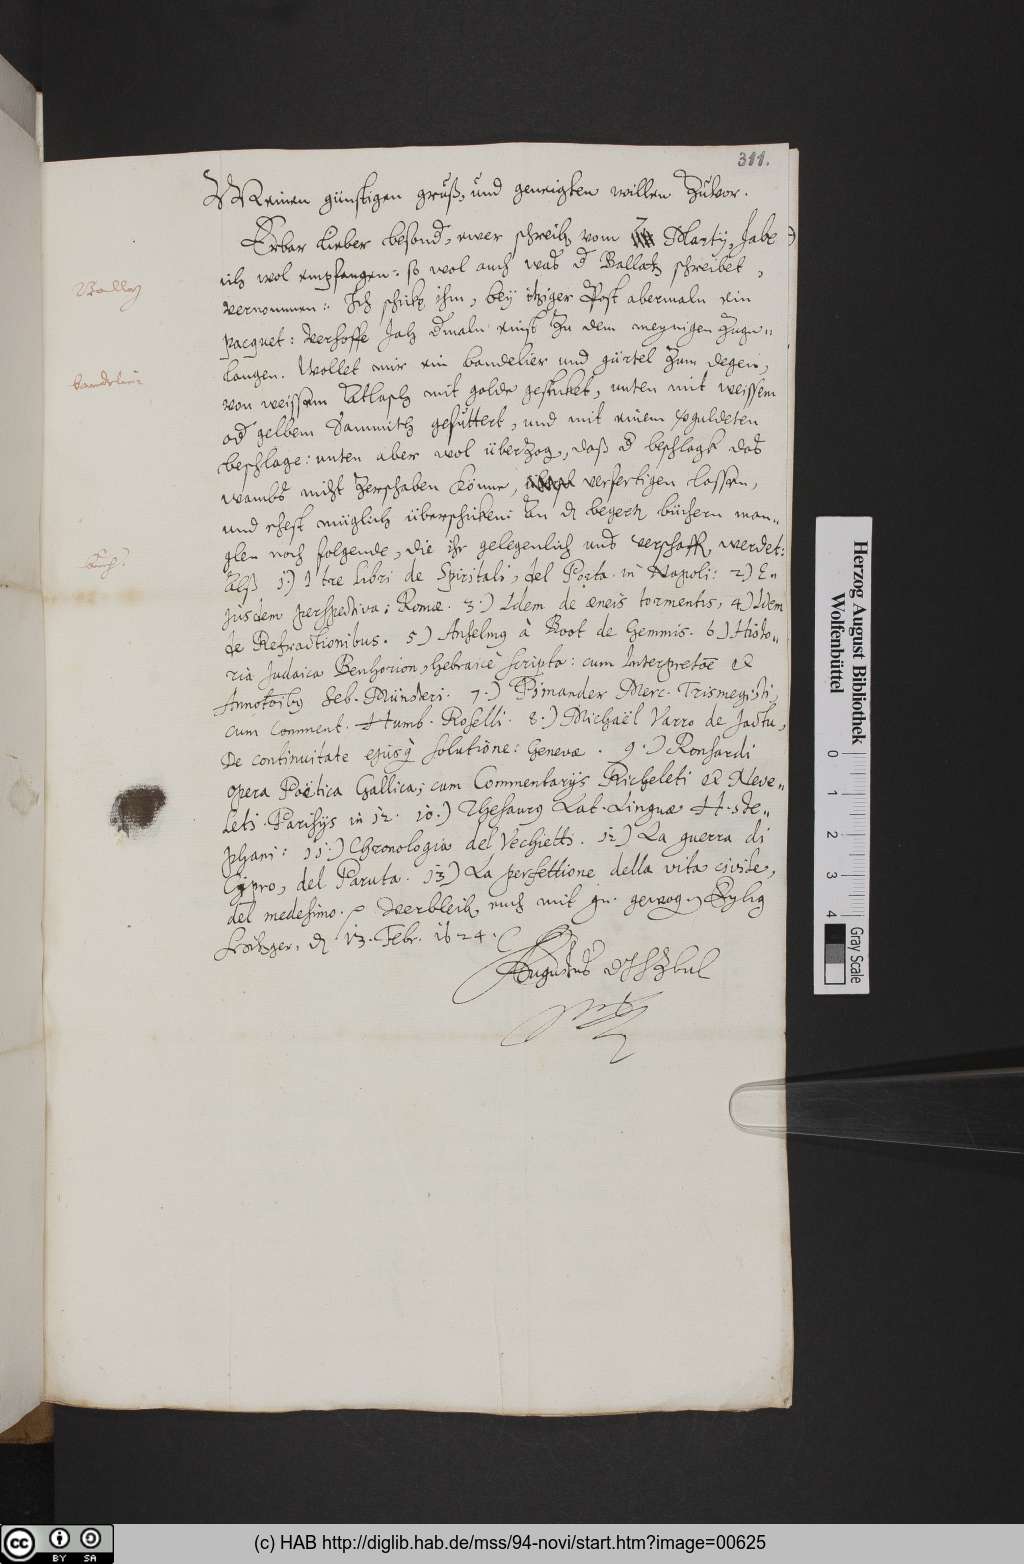 311.
Meinen günstigen gruß, und geneigten willen zuvor.
Erbar lieber besond, ewer schreib vom 7 Marty, habe
ich wol empfangen: so wol auch was d Ballatz schreibet,
vernommen: Ich schick ihm, bey itziger Post abermaln ein
pacquet: verhoffe solch dmaln einst zu dem meynigen zuge„
langen. Wollet mir ein bandelier und gürtel zum degen,
von weissem Atlasch mit golde gesticket, unten mit weissem
od gelbem Sammitch gefüttert, und mit einem verguldeten
beschlage: unten aber wol überzog, daß d beschlagk das
wambs nicht zerschaben könne, verfertigen lassen,
und ehest müglich überschicken: An d begert büchern man„
glen noch folgende, die ihr gelegenlich uns verschaff werdet:
Alß 1.) I tre Libri de Spiritali, del Porta. in Napoli: 2) E„
jusdem perspectiva: Romæ. 3.) Idem de æneis tormentis, 4) Idem
de Refractionibus. 5) Anselmg à Boot de Gemmis. 6.) Histo„
ria Judaica Benhorion, Hebraicè scripta: cum Interpretõe et
Annotõibg Seb. Münsteri. 7.) Pimander Merc. Trismegisti,
cum comment. Hannib. Roselli. 8.) Michaël Varro de Jactu,
De continuitate ejusq solutione: Genevæ. 9.) Ronsardi
opera Poëtica Gallica; cum Commentarijs Richeleti et Neve„
leti. Parisijs in 12. 10.) Thesaurg Lat. Linguæ H. Ste„
phani: 11.) Chronologia del Vechietti. 12) La guerra di
Cypro, del Paruta. 13) La perfettione della vita civile,
del medesimo. verbleib euch mit gn. gewog. Eylig
d 13. Febr. 1624.
Augustus
bandelier
Herzog August Bibliothek
Wolfenbüttel
0 1 2 3 4
Gray Scale
cc BY SA
(c) HAB http://diglib.hab.de/mss/94-novi/start.htm?image=00625